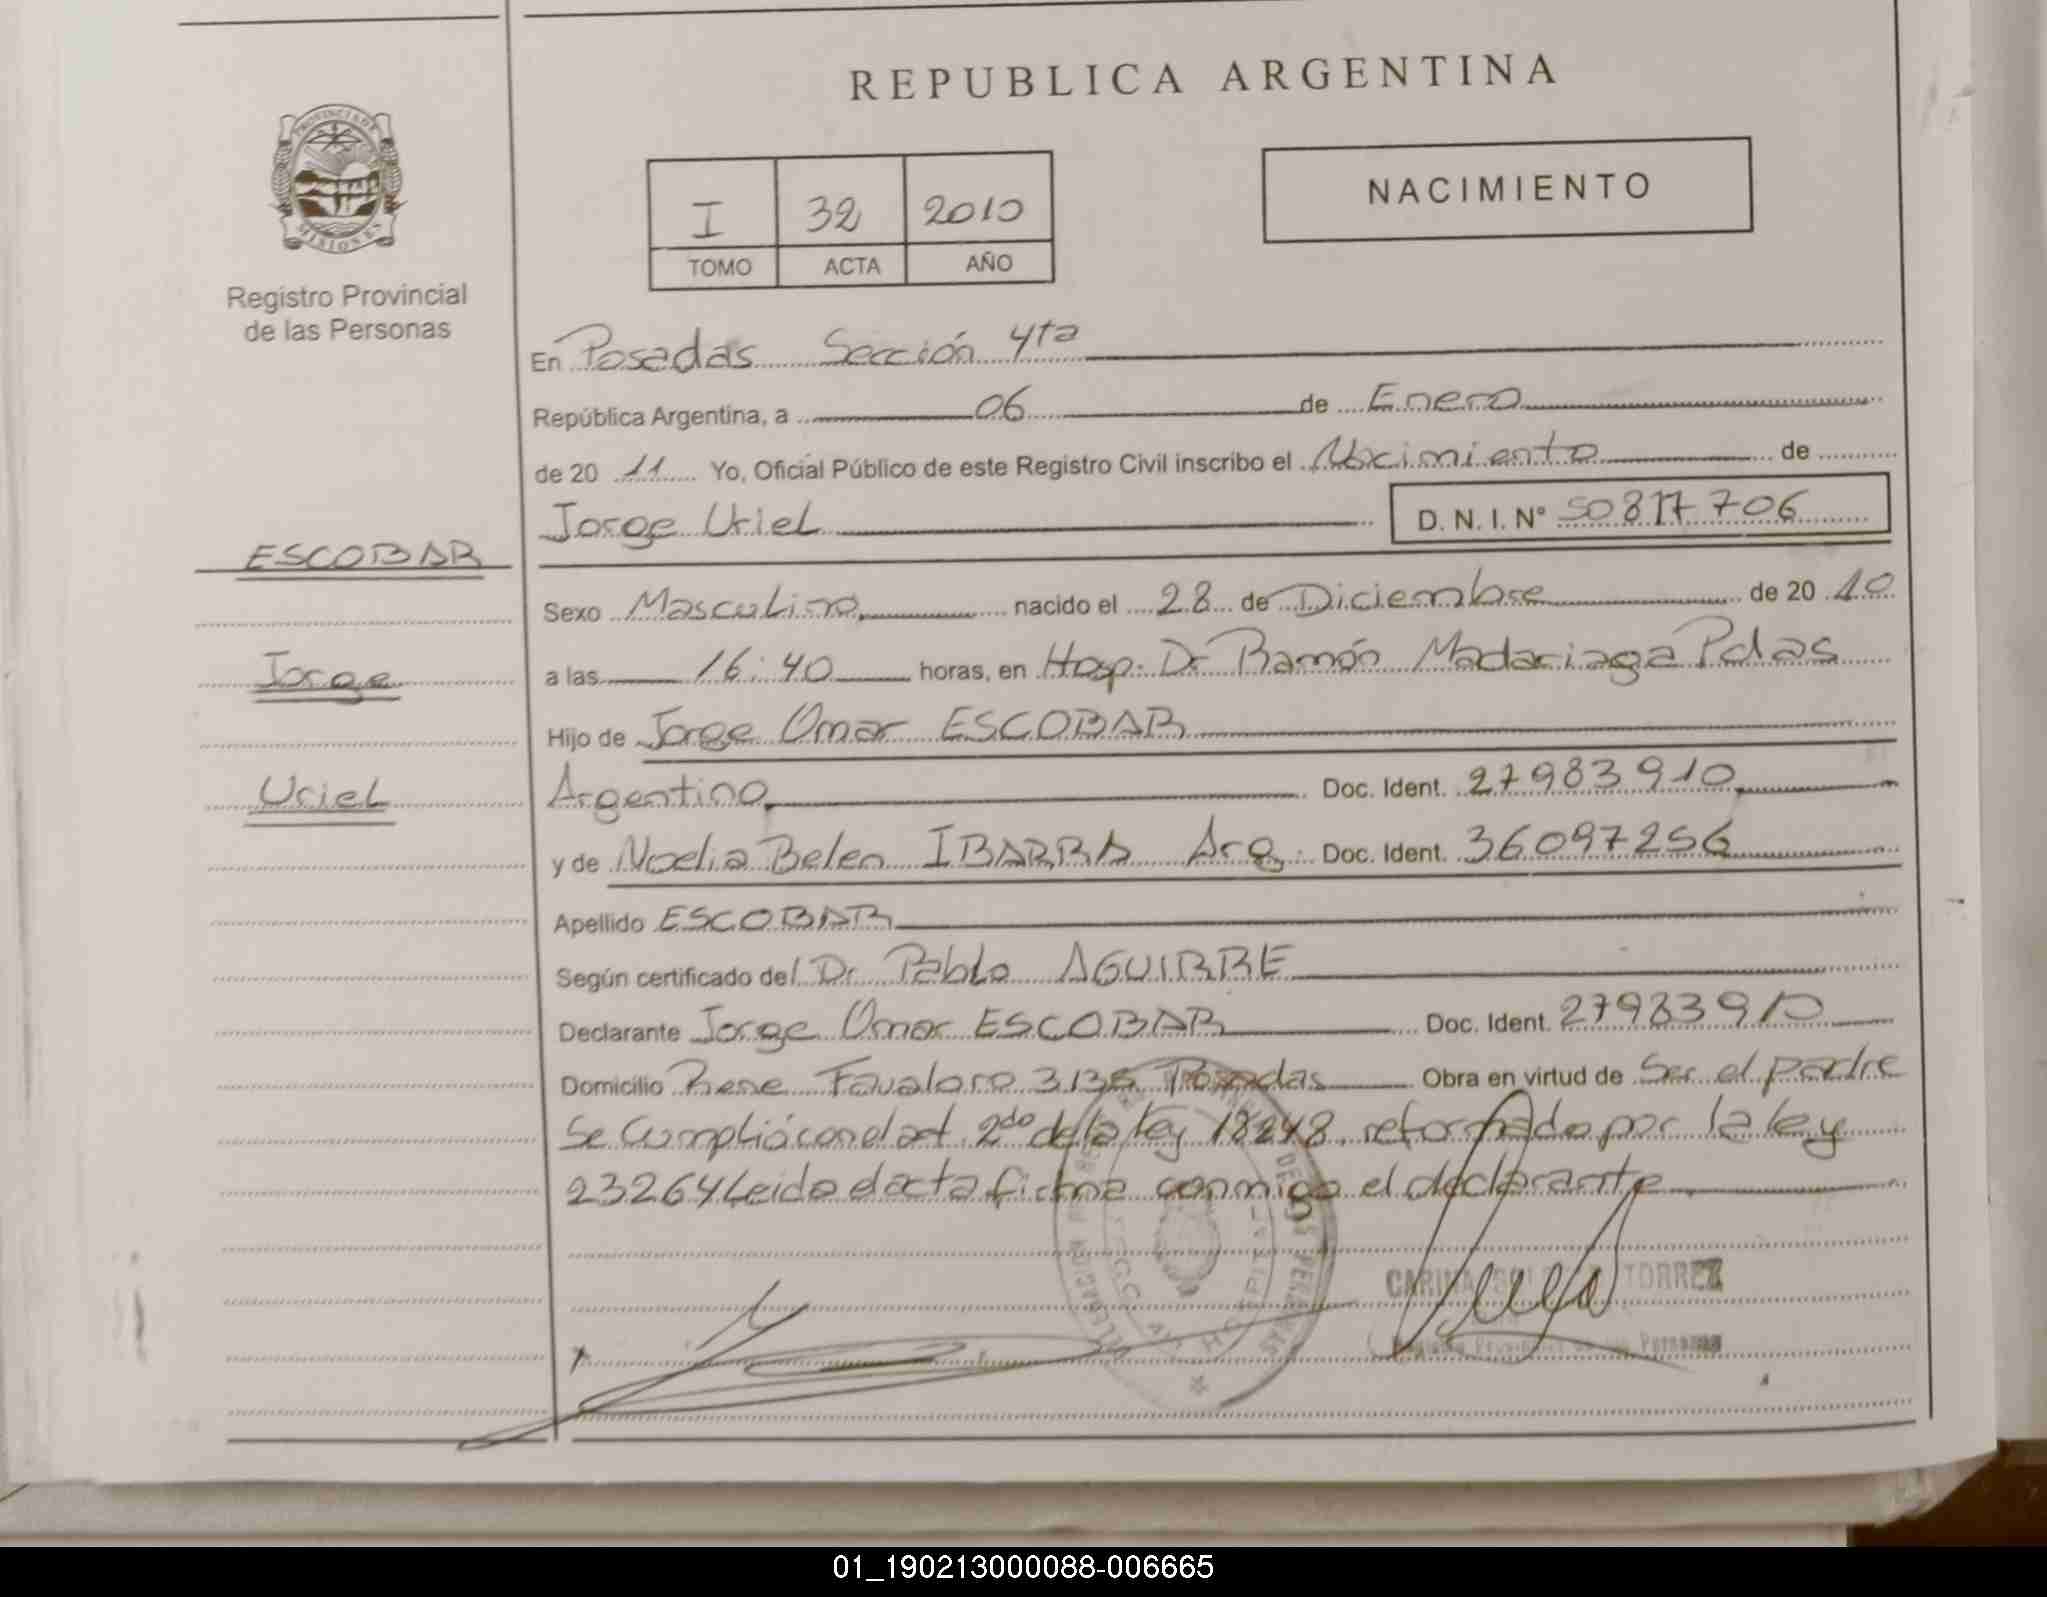 REPUBLICA ARGENTINA
PROVINCIA DE
MISIONES
Registro Provincial
de las Personas
I 32 2010
TOMO ACTA AÑO
NACIMIENTO
En Posadas Sección 4ta
República Argentina, a 06 de Enero
de 20 11 Yo, Oficial Público de este Registro Civil inscribo el Nacimiento de
Jorge Uriel D. N. I. N° 50817706
ESCOBAR
Jorge
Uriel
Sexo Masculino nacido el 28 de Diciembre de 20 10
a las 16:40 horas, en Hosp. Dr Ramón Madariaga Pdas
Hijo de Jorge Omar ESCOBAR
Argentino Doc. Ident. 27983910
y de Noelia Belen IBARRA Arg. Doc. Ident. 36097256
Apellido ESCOBAR
Según certificado del Dr. Pablo AGUIRRE
Declarante Jorge Omar ESCOBAR Doc. Ident. 27983910
Domicilio Rene Favaloro 3136 Posadas Obra en virtud de Ser el padre
Se Cumplió con el art 2do de la ley 18248 reformado por la ley
23264 Leido el acta firma conmigo el declarante
CARINA TORREZ
01_190213000088-006665